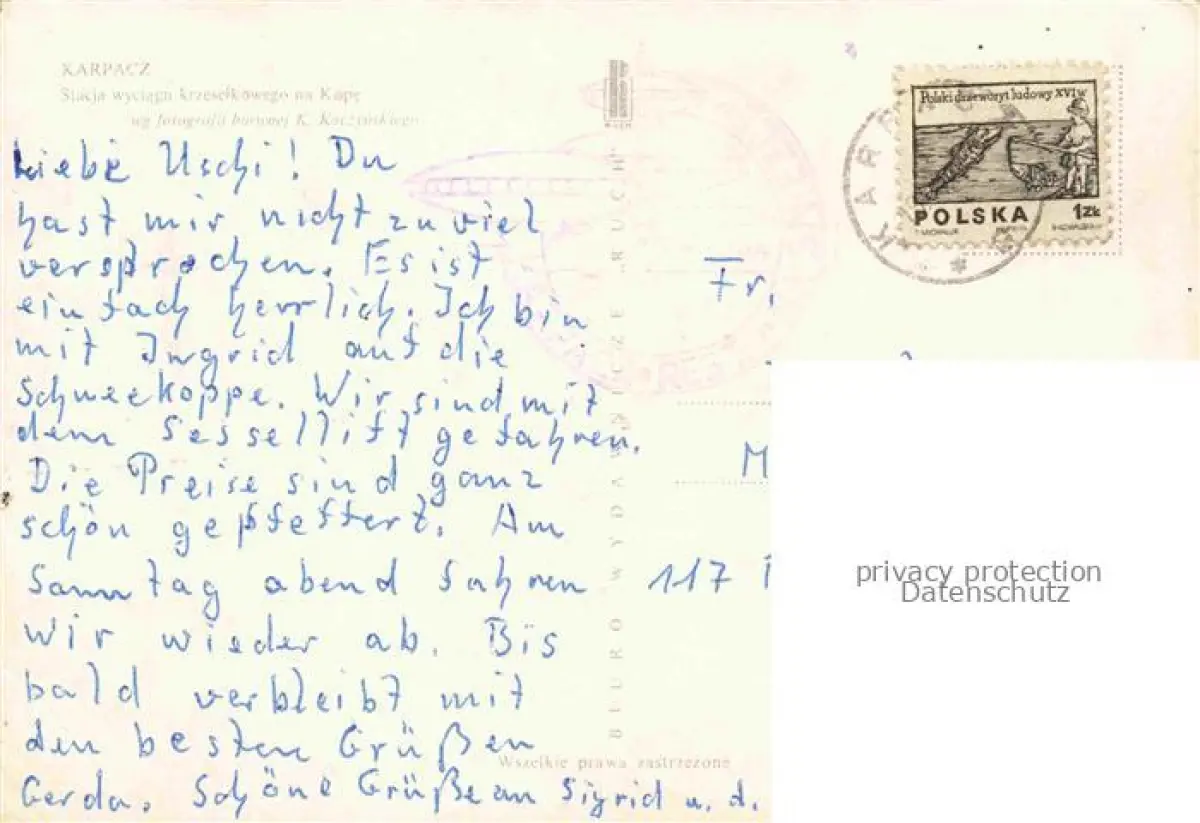 KARPACZ
Stacja wyciągu krzesełkowego na Kopę
wg fotografii barwnej K. Kaczyńskiego
Liebe Uschi! Du
hast mir nicht zu viel
versprochen. Es ist
einfach herrlich. Ich bin
mit Ingrid auf die
Schneekoppe. Wir sind mit
dem Sessellift gefahren.
Die Preise sind ganz
schön gepfeffert. Am
Sonntag abend fahren
wir wieder ab. Bis
bald verbleibt mit
den besten Grüßen
Gerda. Schöne Grüße an Sigrid u. d.
BIURO WYDAWNICZE RUCH
Wszelkie prawa zastrzeżone
Polski drzeworyt ludowy XVI w
POLSKA 1 Zł
KARPACZ
Fr.
M
117
privacy protection
Datenschutz